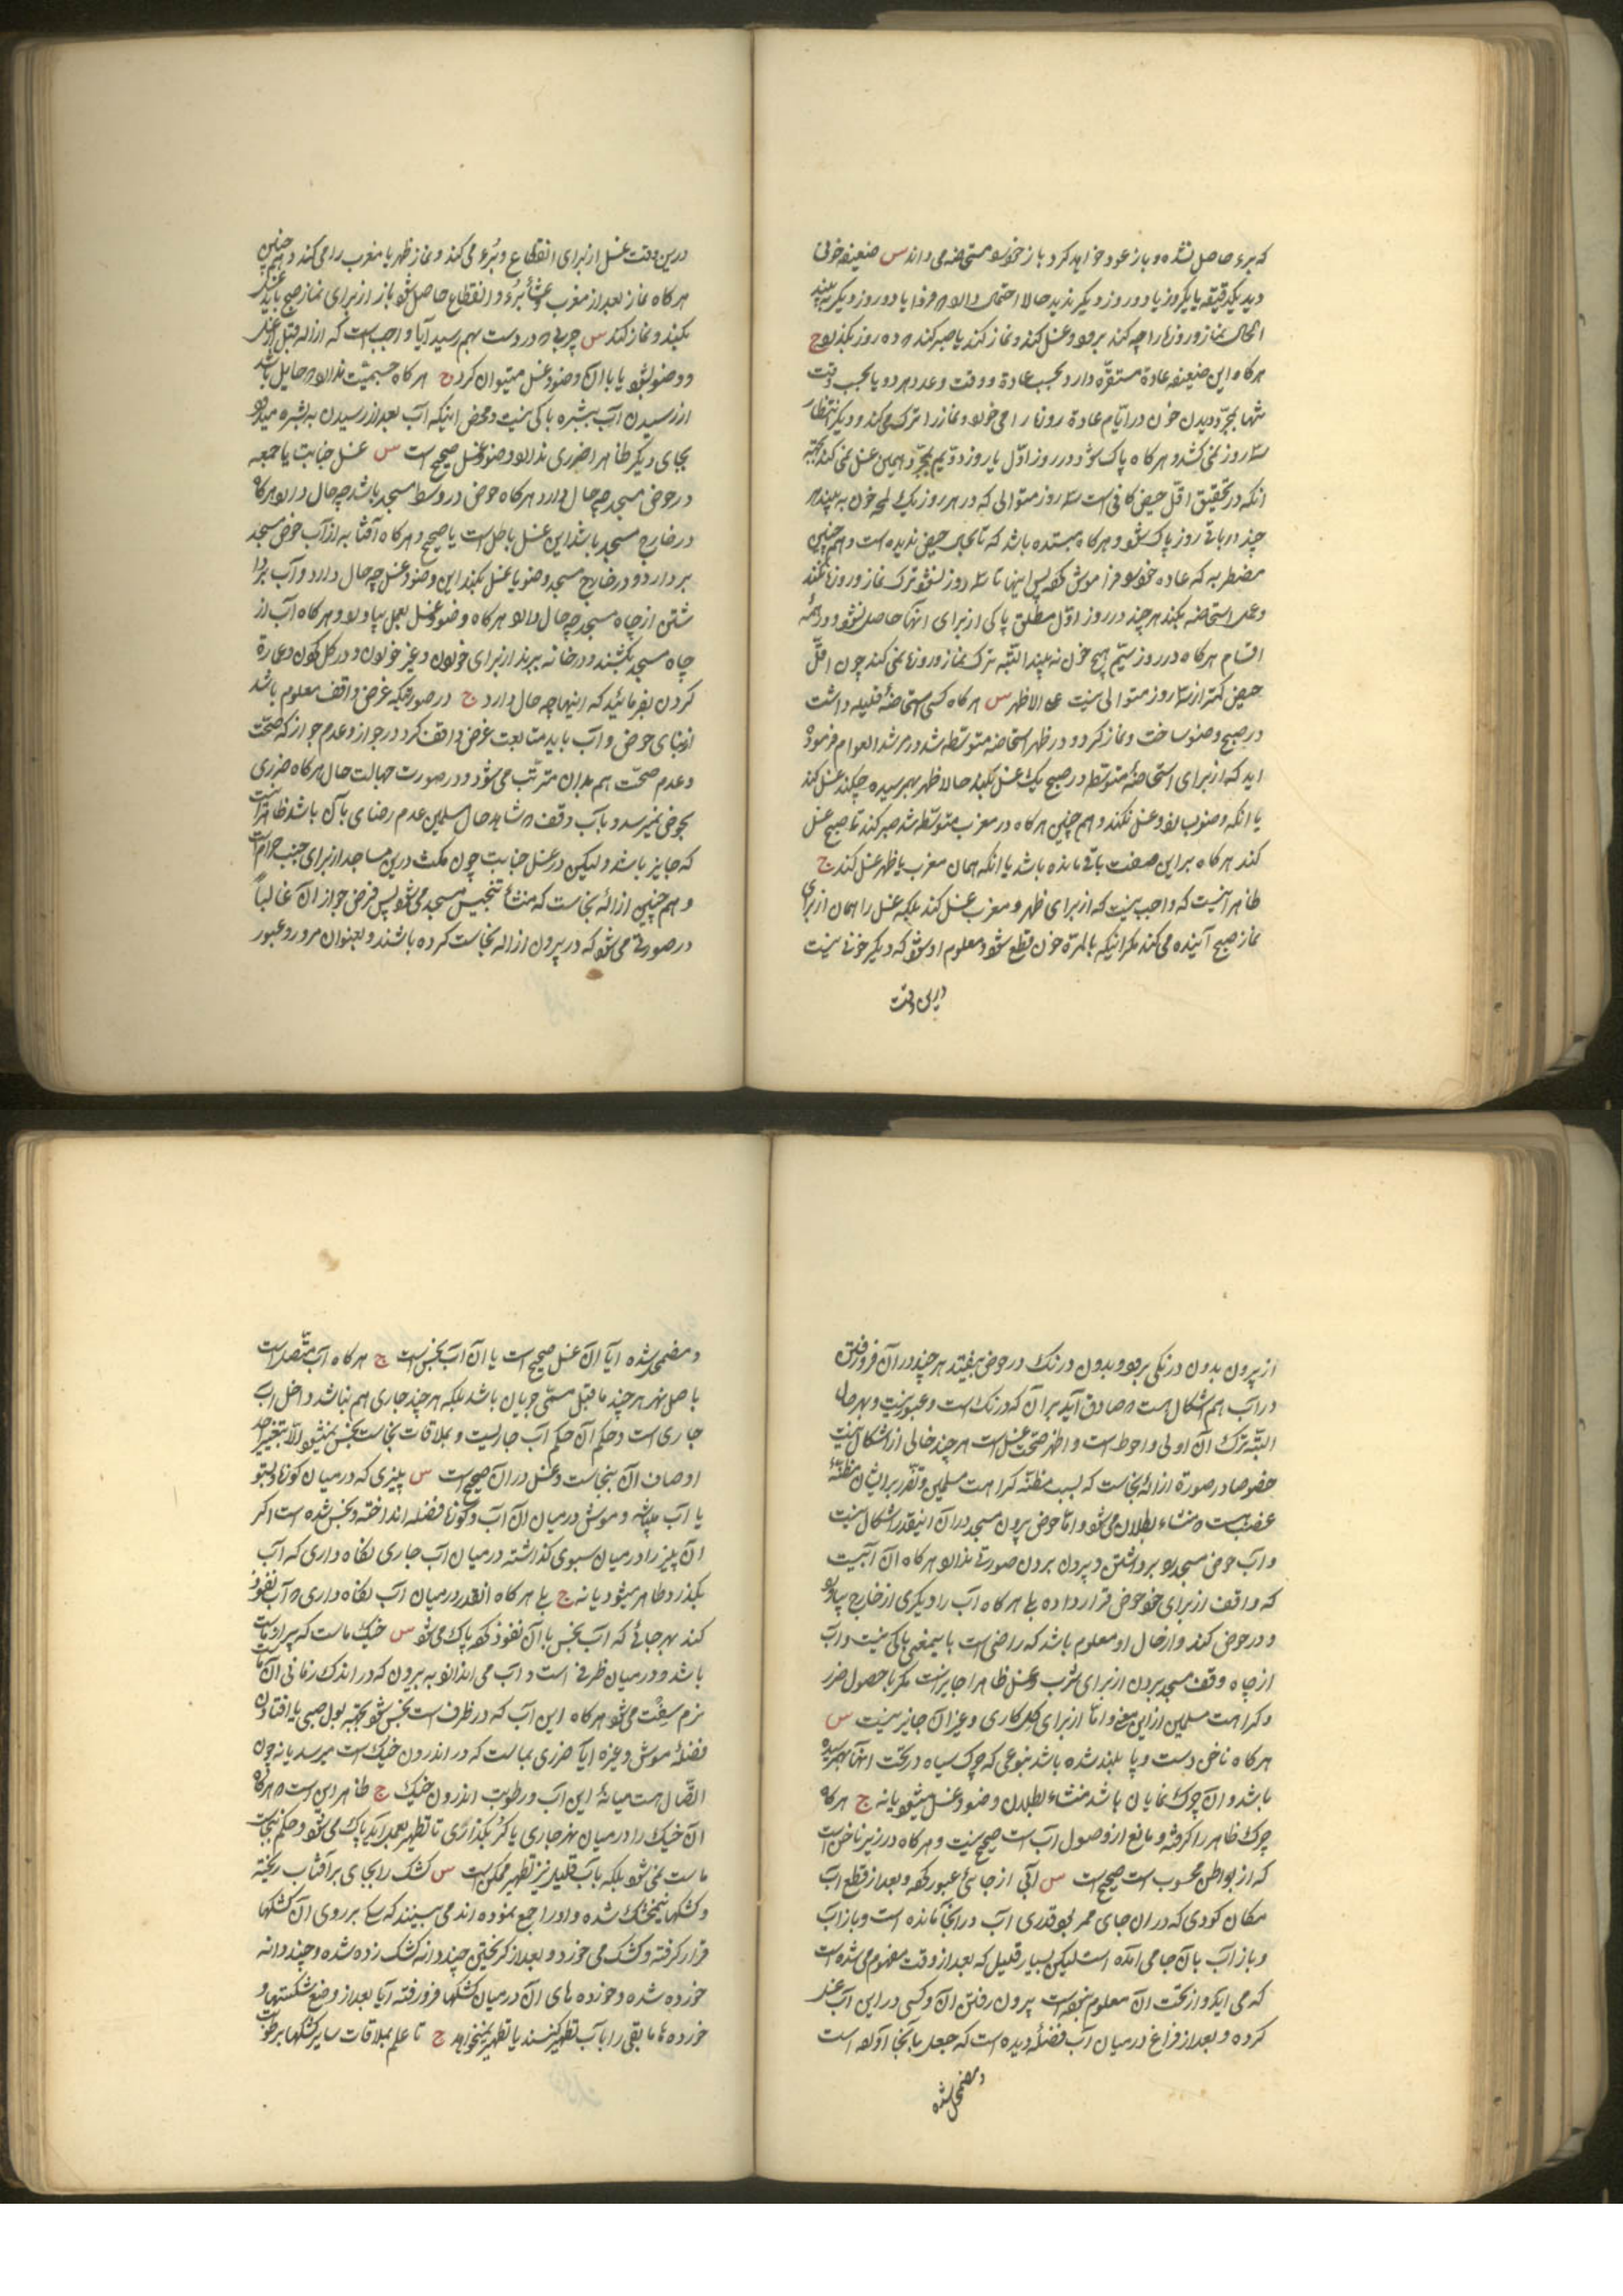 که برء حاصل نشده و باز عود خواهد کرد و باز خود را مستحاضه می داند س ضعیفه خونی
دید یکدقیقه یا یکروز یا دو روز دیگر ندید حالا احتمال دارد که فردا یا دو روز دیگر به بیند
الحال نماز و روزها را چه کند برود و غسل کند و نماز کند یا صبر کند تا ده روز بگذرد ج
هرگاه این ضعیفه عادة مستقره دارد بحسب عادة و وقت و عدد هر دو یا بحسب وقت
تنها بمجرد دیدن خون در ایام عادة روزه را می خورد و نماز را ترک می کند و دیگر انتظار
سه روز نمی کشد و هرگاه پاک شود در روز اول یا روز دویم بمجرد همین غسل نمی کند بجهة
انکه در تحقیق اقل حیض کافی است سه روز متوالی که در هر روز یک لمحه خون به بیند هر
چند در باقی روز پاک شود و هرگاه مبتدئه باشد که تابحال حیض ندیده است و هم چنین
مضطربه که عاده خود را فراموش کرده پس اینها تا سه روز نشود ترک نماز و روزه نکند
و عمل استحاضه بکند هر چند در روز اول مطلق پاکی از برای انها حاصل نشود و در همه
اقسام هرگاه در روز سیّم هیچ خون نه بیند البته ترک نماز و روزه نمی کند چون اقل
حیض کمتر از سه روز متوالی نیست علی الاظهر س هرگاه کسی استحاضهٔ قلیله داشت
در صبح وضو ساخت و نماز کرد و در ظهر استحاضه متوسطه شد در مرشد العوام فرموده
اید که از برای استحاضهٔ متوسطه در صبح یک غسل بکند حالا ظهر بهم رسیده چکند غسل کند
یا انکه وضو بسازد و غسل نکند و هم چنین هرگاه در مغرب متوسطه شد صبر کند تا صبح غسل
کند هرگاه بر این صفت باقی مانده باشد یا انکه همان مغرب یا ظهر غسل کند ج
ظاهر آنست که واجب نیست که از برای ظهر و مغرب غسل کند بلکه غسل را همان از برای
نماز صبح آینده می کند مگر اینکه بالمرة خون قطع شود و معلوم او شود که دیگر خونی نیست
در این وقت
درین وقت غسل از برای انقطاع و برء می کند و نماز ظهر یا مغرب را می کند و هم چنین
هرگاه نماز بعد از مغرب و عشا برء و انقطاع حاصل شود باز از برای نماز صبح باید غسل
بکند و نماز کند س چربی که در دست بهم رسید آیا واجب است که ازاله قبل از غسل
و وضو بشود یا با ان وضو و غسل میتوان کرد ج هرگاه جسمیت ندارد که حایل باشد
از رسیدن آب ببشره باکی نیست و محض اینکه آب بعد از رسیدن به بشره میرود
بجای دیگر ظاهرا ضرری ندارد و وضو و غسل صحیح است س غسل جنابت یا جمعه
در حوض مسجد چه حال دارد هرگاه حوض در وسط مسجد باشد چه حال دارد و هرگاه
در خارج مسجد باشد این غسل باطل است یا صحیح و هرگاه آفتابه از آب حوض مسجد
بردارد و در خارج مسجد وضو یا غسل بکند این وضو و غسل چه حال دارد و آب بردا
شتن از چاه مسجد چه حال دارد هرگاه وضو و غسل بعمل بیاورد و هرگاه آب از
چاه مسجد بکشند و در خانه ببرند از برای خوردن و غیر خوردن و در گل کردن و عمارة
کردن بفرمائید که اینها چه حال دارد ج در صورتیکه غرض واقف معلوم باشد
از بنای حوض و آب باید متابعت غرض واقف کرد در جواز و عدم جواز که صحت
و عدم صحت هم بدان مترتب می شود و در صورت جهالت حال هرگاه ضرری
بحوض نمیرسد و با آب وقف که شاهد حال مسلمین عدم رضای بآن باشد ظاهرا اینست
که جایز باشد و لیکن در غسل جنابت چون مکث درین مساجد از برای جنب حرام است
و هم چنین ازالهٔ نجاست که منشأ تنجیس مسجد می شود پس فرض جواز ان غالباً
در صورتی می شود که در بیرون ازاله نجاست کرده باشند و بعنوان مرور و عبور
از بیرون بدون درنگی برود و بدون درنگ در حوض بیفتد هر چند در آن فرو رفتن
در آب هم اشکال هست که صادق آید بر آن که درنگ است و عبور نیست و بهر حال
البته ترک آن اولی و احوط است و اظهر صحت غسل است هر چند خالی از اشکال نیست
خصوصا در صورة ازالهٔ نجاست که بسبب مظنه کراهت مسلمین و تقذر بر ایشان مظنهٔ
غصب هست که منشاء بطلان می شود و اما حوض بیرون مسجد در آن اینقدر اشکال نیست
و آب حوض مسجد را برداشتن و بیرون بردن صورتی ندارد هرگاه ان آبیست
که واقف از برای خود حوض قرار داده بلی هرگاه آب را دیگری از خارج بیاورد
و در حوض کند و از حال او معلوم باشد که راضی است باینمعنی باکی نیست و آب
از چاه وقف مسجد بردن از برای شرب و غسل ظاهرا جایز است مگر با حصول ضرر
و کراهت مسلمین از این معنی و اما از برای گل کاری و غیر ان جایز نیست س
هرگاه ناخن دست و پا بلند شده باشد بنوعی که چرک سیاه در تحت انها بهم رسیده
باشد و ان چرک نمایان باشد منشاء بطلان وضو و غسل میشود یا نه ج هرگاه
چرک ظاهر را گرفته و مانع از وصول آب است صحیح نیست و هرگاه در زیر ناخن است
که از بواطن محسوب است صحیح است س آبی از جائی عبور کرده و بعد از قطع اب
مکان گودی که در ان جای ممر بود قدری اب در انجا مانده است و باز اب
و باز اب بان جا می امده است لیکن بسیار قلیل که بعد از وقت مفهوم می شده است
که می اید و از تحت ان معلوم نبوده است بیرون رفتن ان و کسی در این آب غسل
کرده و بعد از فراغ در میان آب فضله دیده است که جعل بانجا آورده است
و مضمحل شده
و مضمحل شده ایا ان غسل صحیح است یا ان اب نجس است ج هرگاه آب متصل است
باصل نهر هر چند ما قبل مسمی جریان باشد بلکه هر چند جاری هم نباشد داخل اب
جاری است و حکم آن حکم آب جاریست و بملاقات نجاست نجس نمیشود الا بتغییر احد
اوصاف ان بنجاست و غسل در ان صحیح است س پنیری که در میان کوزه یا سبو
یا آب میباشد و موش در میان ان آب و کوزه فضله انداخته و نجس شده است اگر
ان پنیر را در میان سبوی گذاشته در میان آب جاری نگاه داری که آب
بگذرد طاهر میشود یا نه ج بلی هرگاه انقدر در میان آب نگاه داری که آب نفوذ
کند بهر جائی که اب نجس با ان نفوذ کرده پاک می شود س خیک ماست که پیر او ماست
باشد و در میان ظرفی است و آب می اندازد به بیرون که در اندک زمانی ان ماست
نرم سفت می شود هرگاه این آب که در ظرف است نجس شود بجهة بول صبی یا افتادن
فضلهٔ موش و غیره ایا ضرری بماست که در اندرون خیک است میرسد یا نه چون
اتصال هست میانهٔ این اب و رطوبت اندرون خیک ج ظاهر این است که هرگاه
ان خیک را در میان نهر جاری یا کر بگذاری تا تطهیر بعمل آید پاک می شود و حکم نجاست
ماست نمی شود بلکه باب قلیل نیز تطهیر ممکن است س کشک را بجای بر آفتاب ریخته
و کشکها نیمخشک شده و او را جمع نموده اند می بینند که سگ بر روی ان کشکها
قرار گرفته و کشک می خورد و بعد از گریختن چند دانه کشک زده شده و چند دانه
خورده شده و خورده های ان در میان کشکها فرو رفته آیا بعد از وضع شکستها و
خورده ها ما بقی را باب تطهیر کنند یا تطهیر نمیخواهد ج تا علم بملاقات سایر کشکها برطوبت